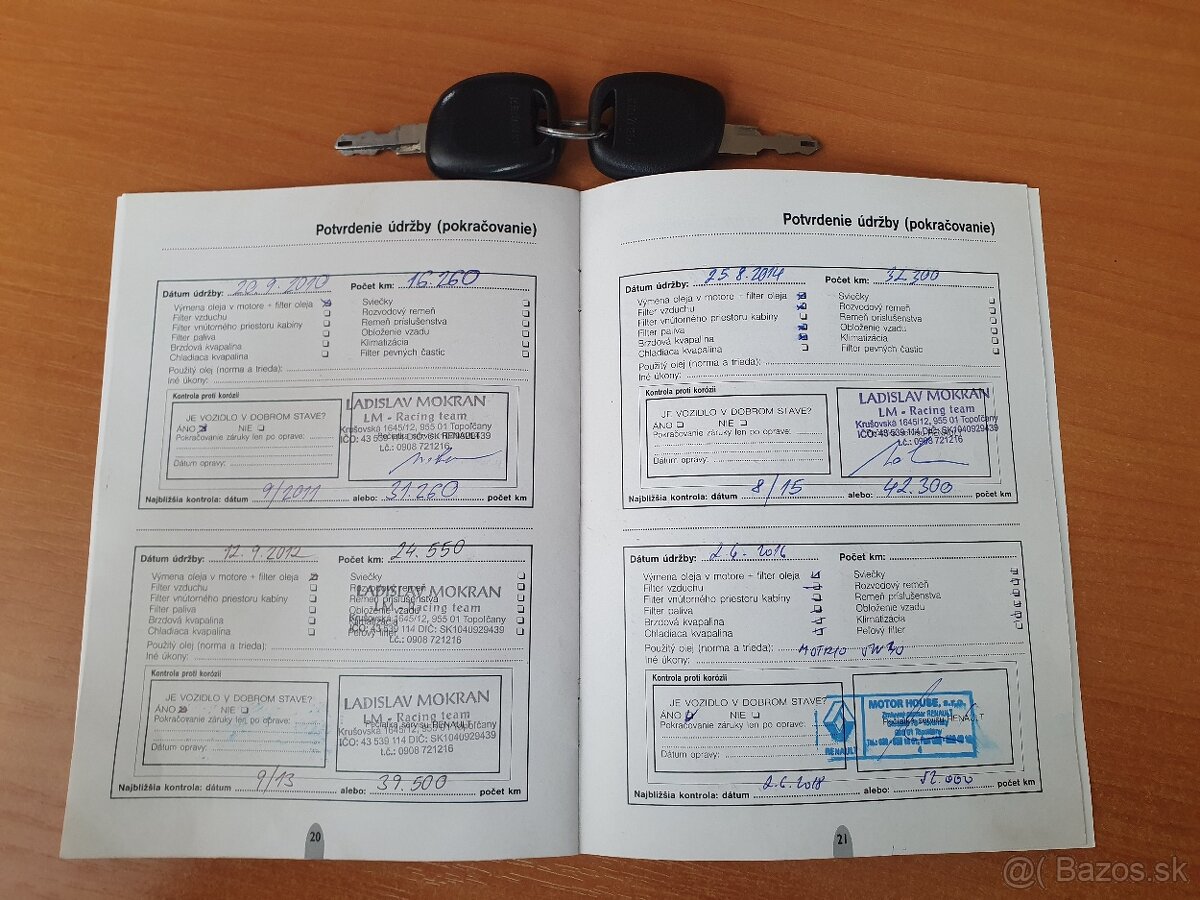 Potvrdenie údržby (pokračovanie)
Dátum údržby: 20.9.2010 Počet km: 16.260
Výmena oleja v motore + filter oleja Sviečky
Filter vzduchu Rozvodový remeň
Filter vnútorného priestoru kabíny Remeň príslušenstva
Filter paliva Obloženie vzadu
Brzdová kvapalina Klimatizácia
Chladiaca kvapalina Filter pevných častíc
Použitý olej (norma a trieda):
Iné úkony:
Kontrola proti korózii
JE VOZIDLO V DOBROM STAVE?
ÁNO NIE
Pokračovanie záruky len po oprave:
Dátum opravy:
LADISLAV MOKRAN
LM - Racing team
Krušovská 1645/12, 955 01 Topoľčany
IČO: 43 539 439
t.č.: 0908 721216
Najbližšia kontrola: dátum 9/2011 alebo: 31.260 počet km
Dátum údržby: 12.9.2012 Počet km: 24.550
Výmena oleja v motore + filter oleja Sviečky
Filter vzduchu Rozvodový remeň
Filter vnútorného priestoru kabíny Remeň príslušenstva
Filter paliva Obloženie vzadu
Brzdová kvapalina
Chladiaca kvapalina Peľový filter
LADISLAV MOKRAN
LM - Racing team
Krušovská 1645/12, 955 01 Topoľčany
IČO: 43 539 114 DIČ: SK1040929439
t.č.: 0908 721216
Použitý olej (norma a trieda):
Iné úkony:
Kontrola proti korózii
JE VOZIDLO V DOBROM STAVE?
ÁNO NIE
Pokračovanie záruky len po oprave:
Dátum opravy:
LADISLAV MOKRAN
LM - Racing team
Pečiatka servisu RENAULT
Krušovská 1645/12, 955 01 Topoľčany
IČO: 43 539 114 DIČ: SK1040929439
t.č.: 0908 721216
Najbližšia kontrola: dátum 9/13 alebo: 39.500 počet km
20
Potvrdenie údržby (pokračovanie)
Dátum údržby: 25.8.2014 Počet km: 32.300
Výmena oleja v motore + filter oleja Sviečky
Filter vzduchu Rozvodový remeň
Filter vnútorného priestoru kabíny Remeň príslušenstva
Filter paliva Obloženie vzadu
Brzdová kvapalina Klimatizácia
Chladiaca kvapalina Filter pevných častíc
Použitý olej (norma a trieda):
Iné úkony:
Kontrola proti korózii
JE VOZIDLO V DOBROM STAVE?
ÁNO NIE
Pokračovanie záruky len po oprave:
Dátum opravy:
LADISLAV MOKRAN
LM - Racing team
Krušovská 1645/12, 955 01 Topoľčany
IČO: 43 539 114 DIČ: SK1040929439
t.č.: 0908 721216
Najbližšia kontrola: dátum 8/15 alebo: 42.300 počet km
Dátum údržby: 2.6.2016 Počet km:
Výmena oleja v motore + filter oleja Sviečky
Filter vzduchu Rozvodový remeň
Filter vnútorného priestoru kabíny Remeň príslušenstva
Filter paliva Obloženie vzadu
Brzdová kvapalina Klimatizácia
Chladiaca kvapalina Peľový filter
Použitý olej (norma a trieda): MOTRIO
Iné úkony:
Kontrola proti korózii
JE VOZIDLO V DOBROM STAVE?
ÁNO NIE
Pokračovanie záruky len po oprave:
Dátum opravy:
RENAULT
MOTOR HOUSE, s.r.o.
Zmluvný partner RENAULT
Topoľčany
4
Najbližšia kontrola: dátum 2.6.2018 alebo: 52.000 počet km
21
@( Bazos.sk